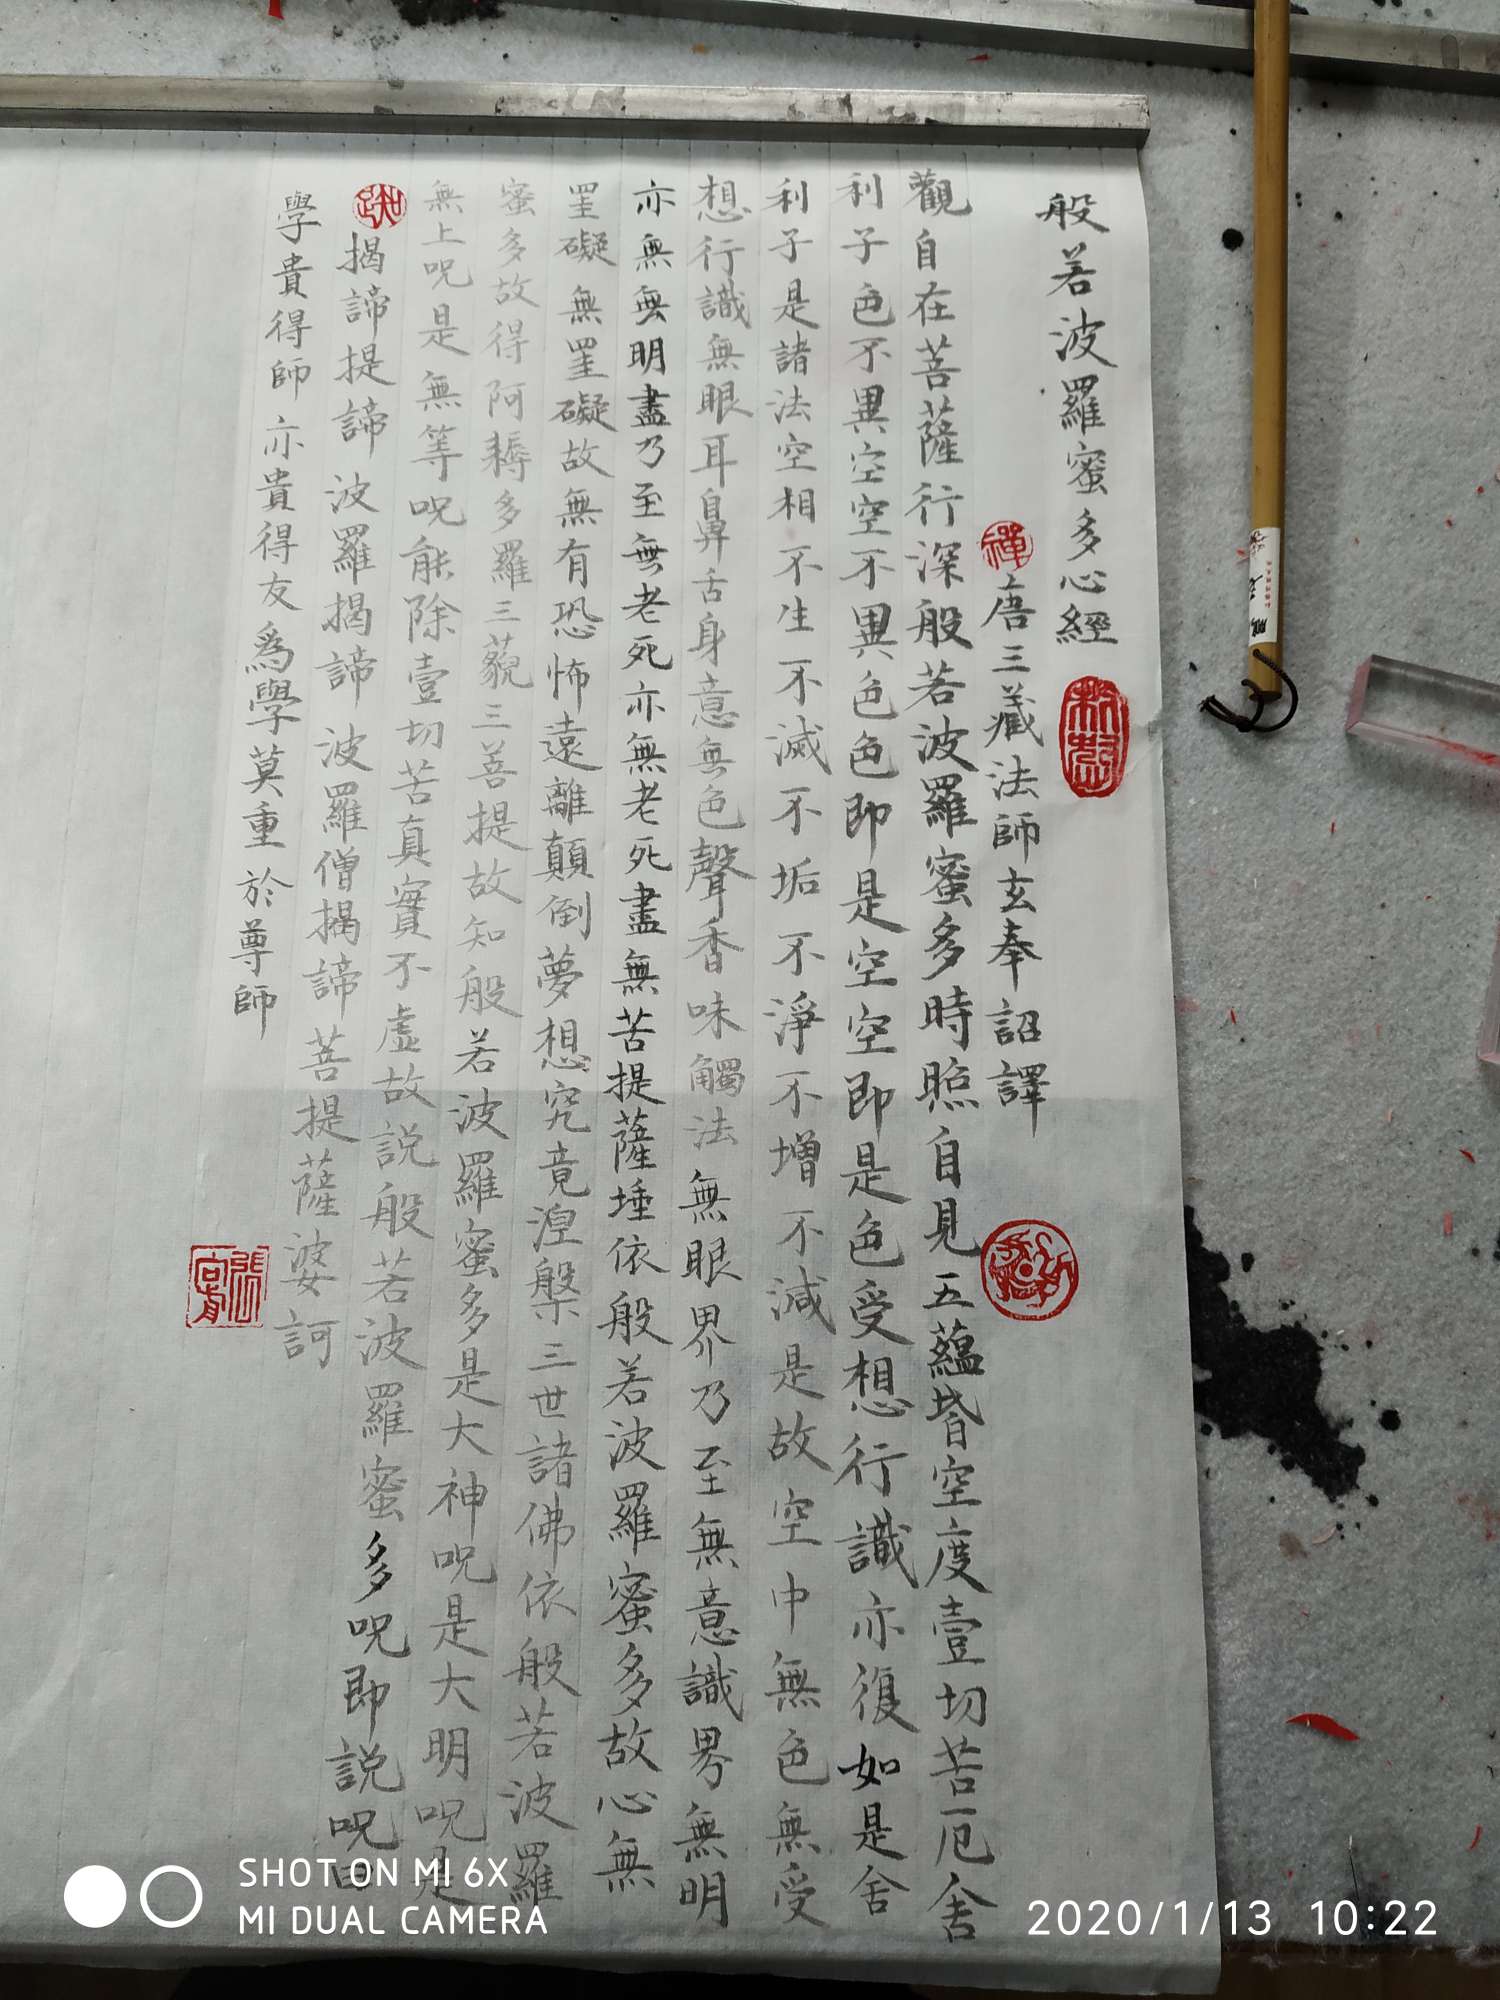 般若波羅蜜多心經
唐三藏法師玄奉詔譯
觀自在菩薩行深般若波羅蜜多時照自見五蘊皆空度壹切苦厄舍
利子色不異空空不異色色即是空空即是色受想行識亦復如是舍
利子是諸法空相不生不滅不垢不淨不增不減是故空中無色無受
想行識無眼耳鼻舌身意無色聲香味觸法無眼界乃至無意識界無明
亦無無明盡乃至無老死亦無老死盡無苦提薩埵依般若波羅蜜多故心無
罣礙無罣礙故無有恐怖遠離顛倒夢想究竟涅槃三世諸佛依般若波羅
蜜多故得阿耨多羅三藐三菩提故知般若波羅蜜多是大神呪是大明呪是
無上呪是無等呪能除壹切苦真實不虛故説般若波羅蜜多呪即説呪曰
揭諦提諦波羅揭諦波羅僧揭諦菩提薩婆訶
學貴得師亦貴得友爲學莫重於尊師
SHOT ON MI 6X
MI DUAL CAMERA
2020/1/13 10:22